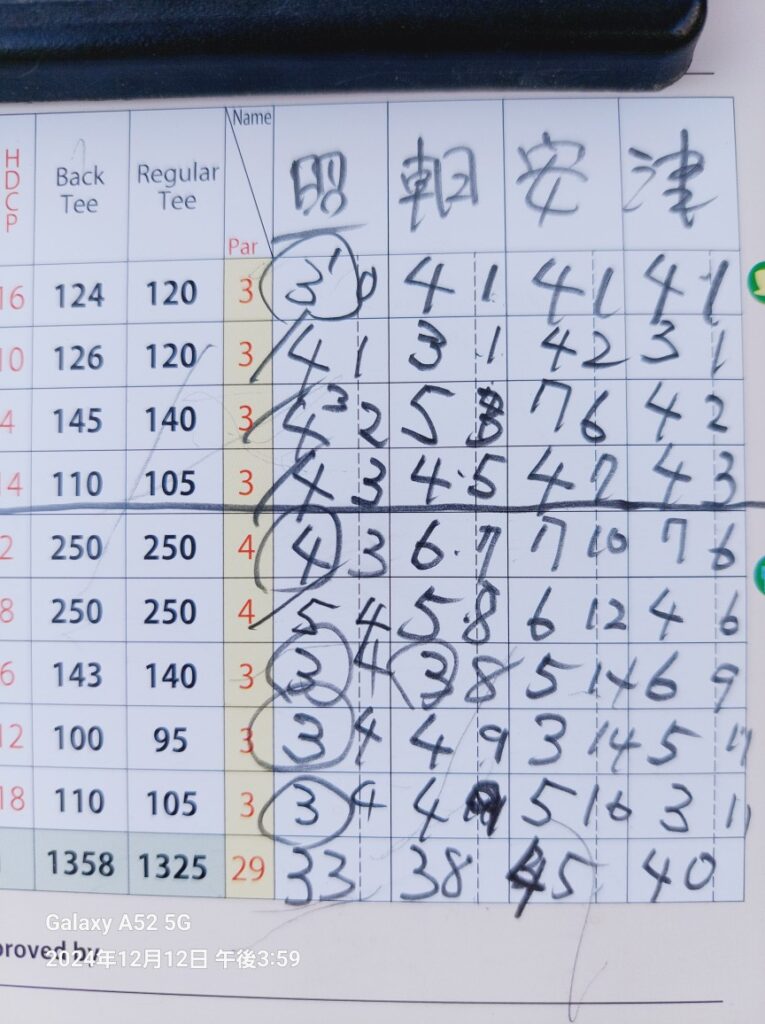 HDCP Back Tee Regular Tee Name Par 昭 朝 安 津
16 124 120 3 3 0 4 1 4 1 4 1
10 126 120 3 4 1 3 1 4 2 3 1
4 145 140 3 4 2 5 7 6 4 2
14 110 105 3 4 3 4 5 4 7 4 3
2 250 250 4 4 3 6 7 7 10 7 6
8 250 250 4 5 4 5 8 6 12 4 6
6 143 140 3 3 4 3 8 5 14 6 9
12 100 95 3 3 4 4 9 3 14 5 11
18 110 105 3 3 4 4 5 16 3 11
1358 1325 29 33 38 45 40
Galaxy A52 5G
proved by
2024年12月12日 午後3:59